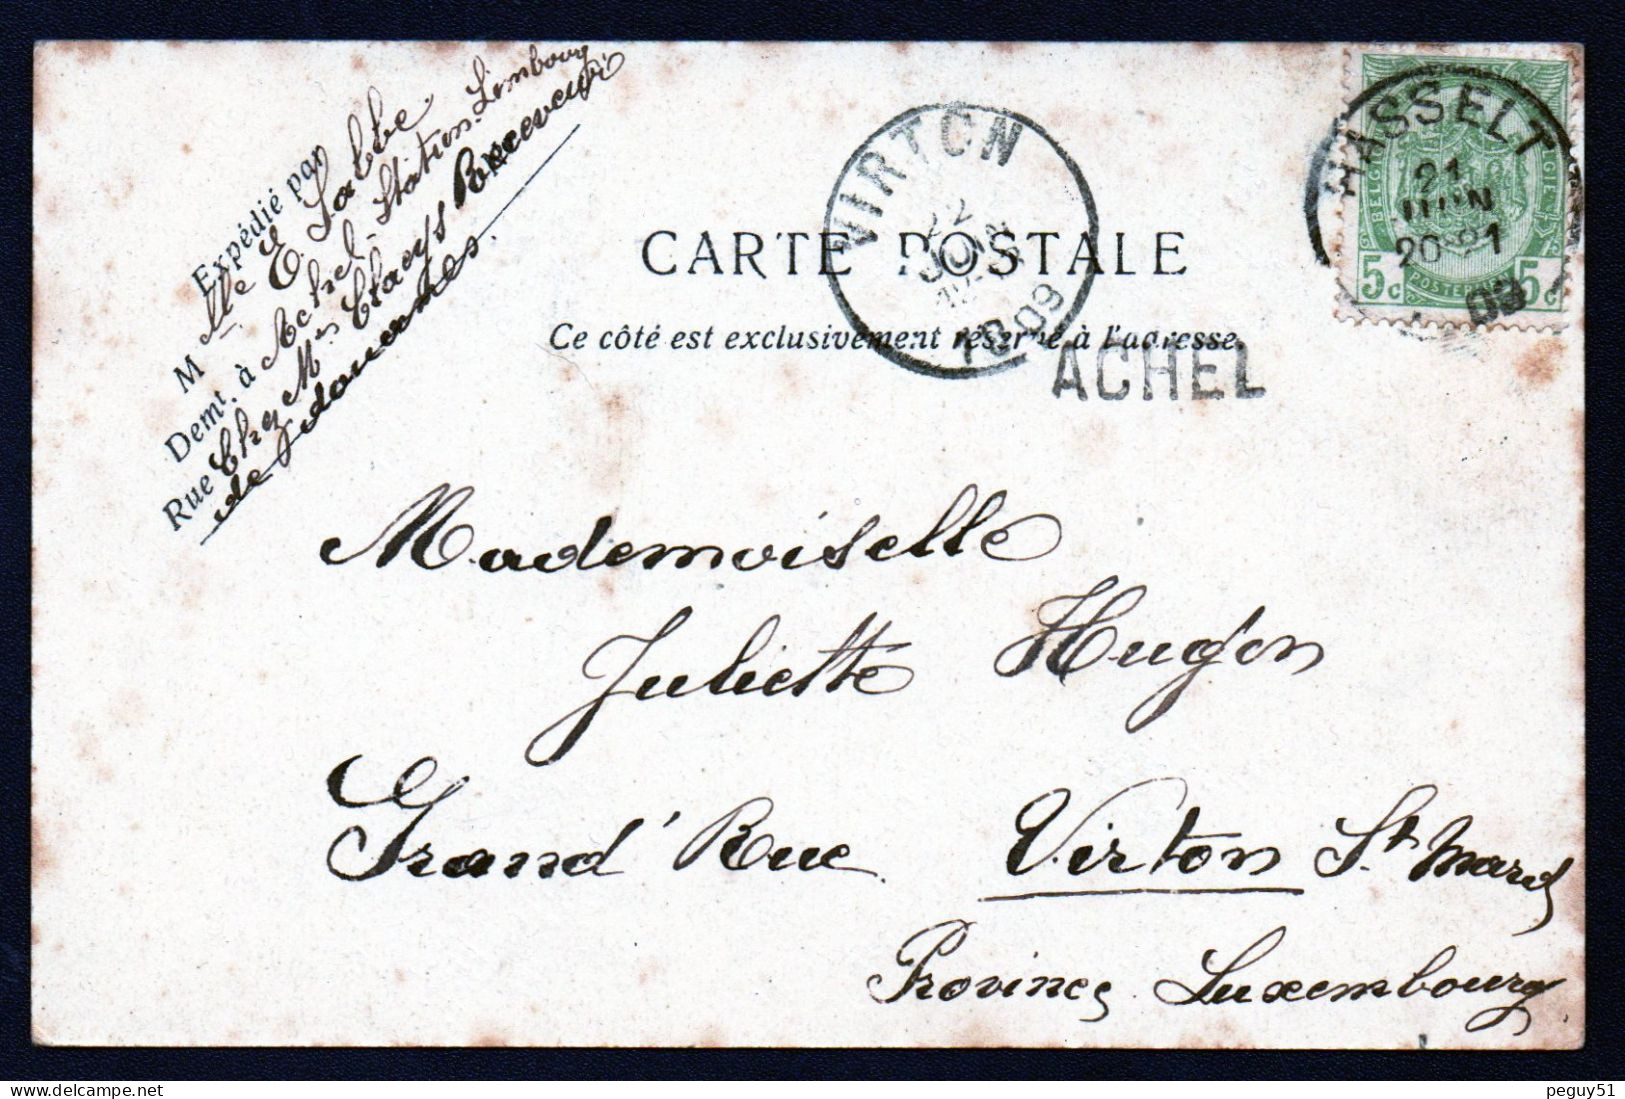 Expédié par
Mlle E. Labbe
Demt. à Achel-Station-Limbourg
Rue Chez Mr Claeys Receveur
de douanes.
VIRTON
22
JUIN
09
HASSELT
21
JUIN
20-21
09
BELGIQUE
BELGIË
5c POSTERIJEN 5c
CARTE POSTALE
Ce côté est exclusivement réservé à l'adresse.
ACHEL
Mademoiselle
Juliette Hugon
Grand'Rue Virton St Mard
Province Luxembourg
peguy51